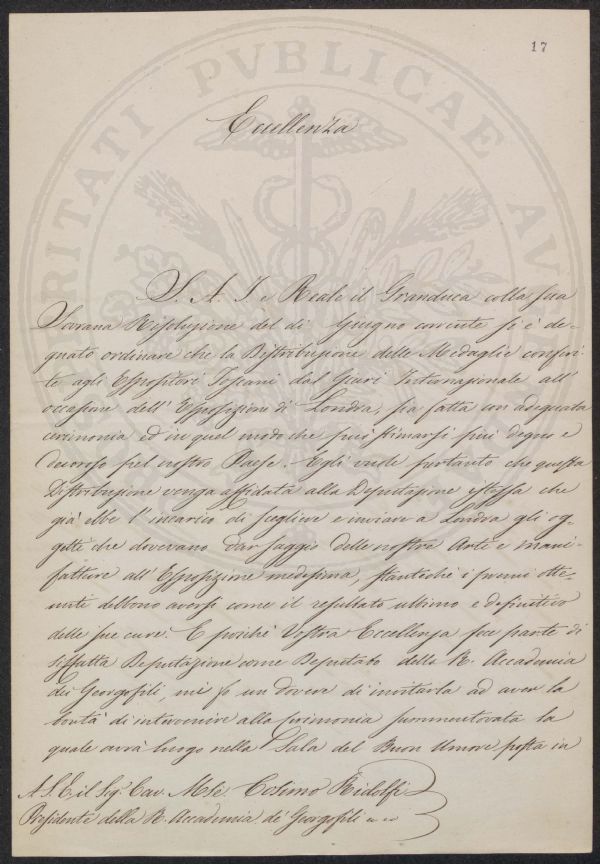 17
Eccellenza
S. A. I. e Reale il Granduca colla sua
Sovrana Risoluzione del dì Giugno corrente si è de-
gnato ordinare che la Distribuzione delle Medaglie conferi-
te agli Espositori Toscani dal Giurì Internazionale all'
occasione dell'Esposizione di Londra, sia fatta con adeguata
cerimonia ed in quel modo che può stimarsi più degno e
decoroso pel nostro Paese. Egli vuole pertanto che questa
Distribuzione venga affidata alla Deputazione istessa che
già ebbe l'incarico di scegliere e inviare a Londra gli og-
getti che dovevano dar saggio delle nostre Arti e mani-
fatture all'Esposizione medesima, stantechè i premi otte-
nuti debbono aversi come il resultato ultimo e definitivo
delle sue cure. E poichè Vostra Eccellenza fece parte di
siffatta Deputazione come Deputato della R. Accademia
dei Georgofili, mi fo un dovere di invitarla ad aver la
bontà di intervenire alla cerimonia summentovata la
quale avrà luogo nella Sala del Buon Umore posta in
A S. E. il Sig. Cav. Mse. Cosimo Ridolfi
Presidente della R. Accademia de' Georgofili
PROSPERITATI PVBLICAE AVGENDAE